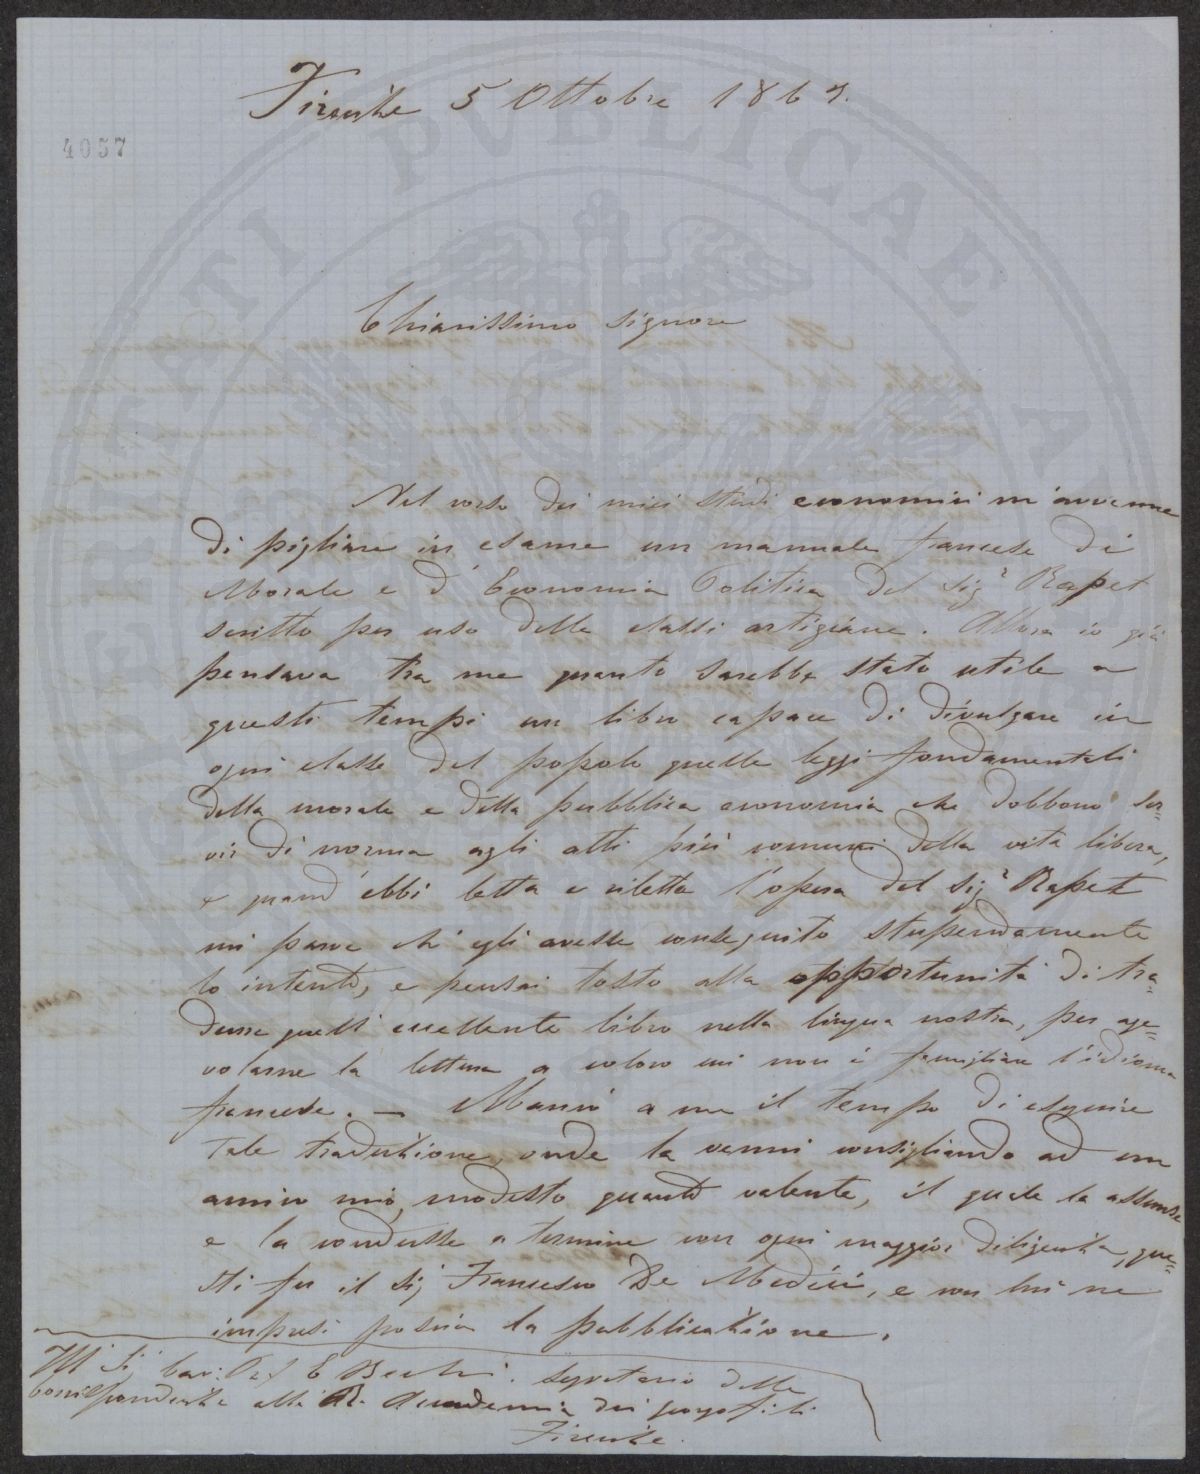 Firenze 5 Ottobre 1867.
4057
Chiarissimo Signore
Nel corso dei miei studi economici m'avvenne
di pigliare in esame un manuale francese di
Morale e d'Economia Politica del Sigr Rapet
scritto per uso delle classi artigiane. Allora io già
pensava tra me quanto sarebbe stato utile a
questi tempi un libro capace di divulgare in
ogni classe del popolo quelle leggi fondamentali
della morale e della pubblica economia che debbono ser=
vir di norma agli atti più comuni della vita libera,
e quand'ebbi letta e riletta l'opera del Sigr Rapet
mi parve ch'egli avesse conseguito stupendamente
lo intento, e pensai tosto alla opportunità di tra=
durre quell'eccellente libro nella lingua nostra, per age=
volarne la lettura a coloro cui non è famigliare l'idioma
francese. — Mancò a me il tempo di eseguire
tale traduzione, onde la venni consigliando ad un
amico mio, modesto quanto valente, il quale la assunse
e la condusse a termine con ogni maggior diligenza, que=
sti fu il Sig Francesco De Medici, e con lui ne
impresi poscia la pubblicazione.
Ill Sig Cav: Prof E Bechi. Segretario delle
Corrispondenze alla R. Accademia dei Georgofili
Firenze.
PERITATI PVBLICAE